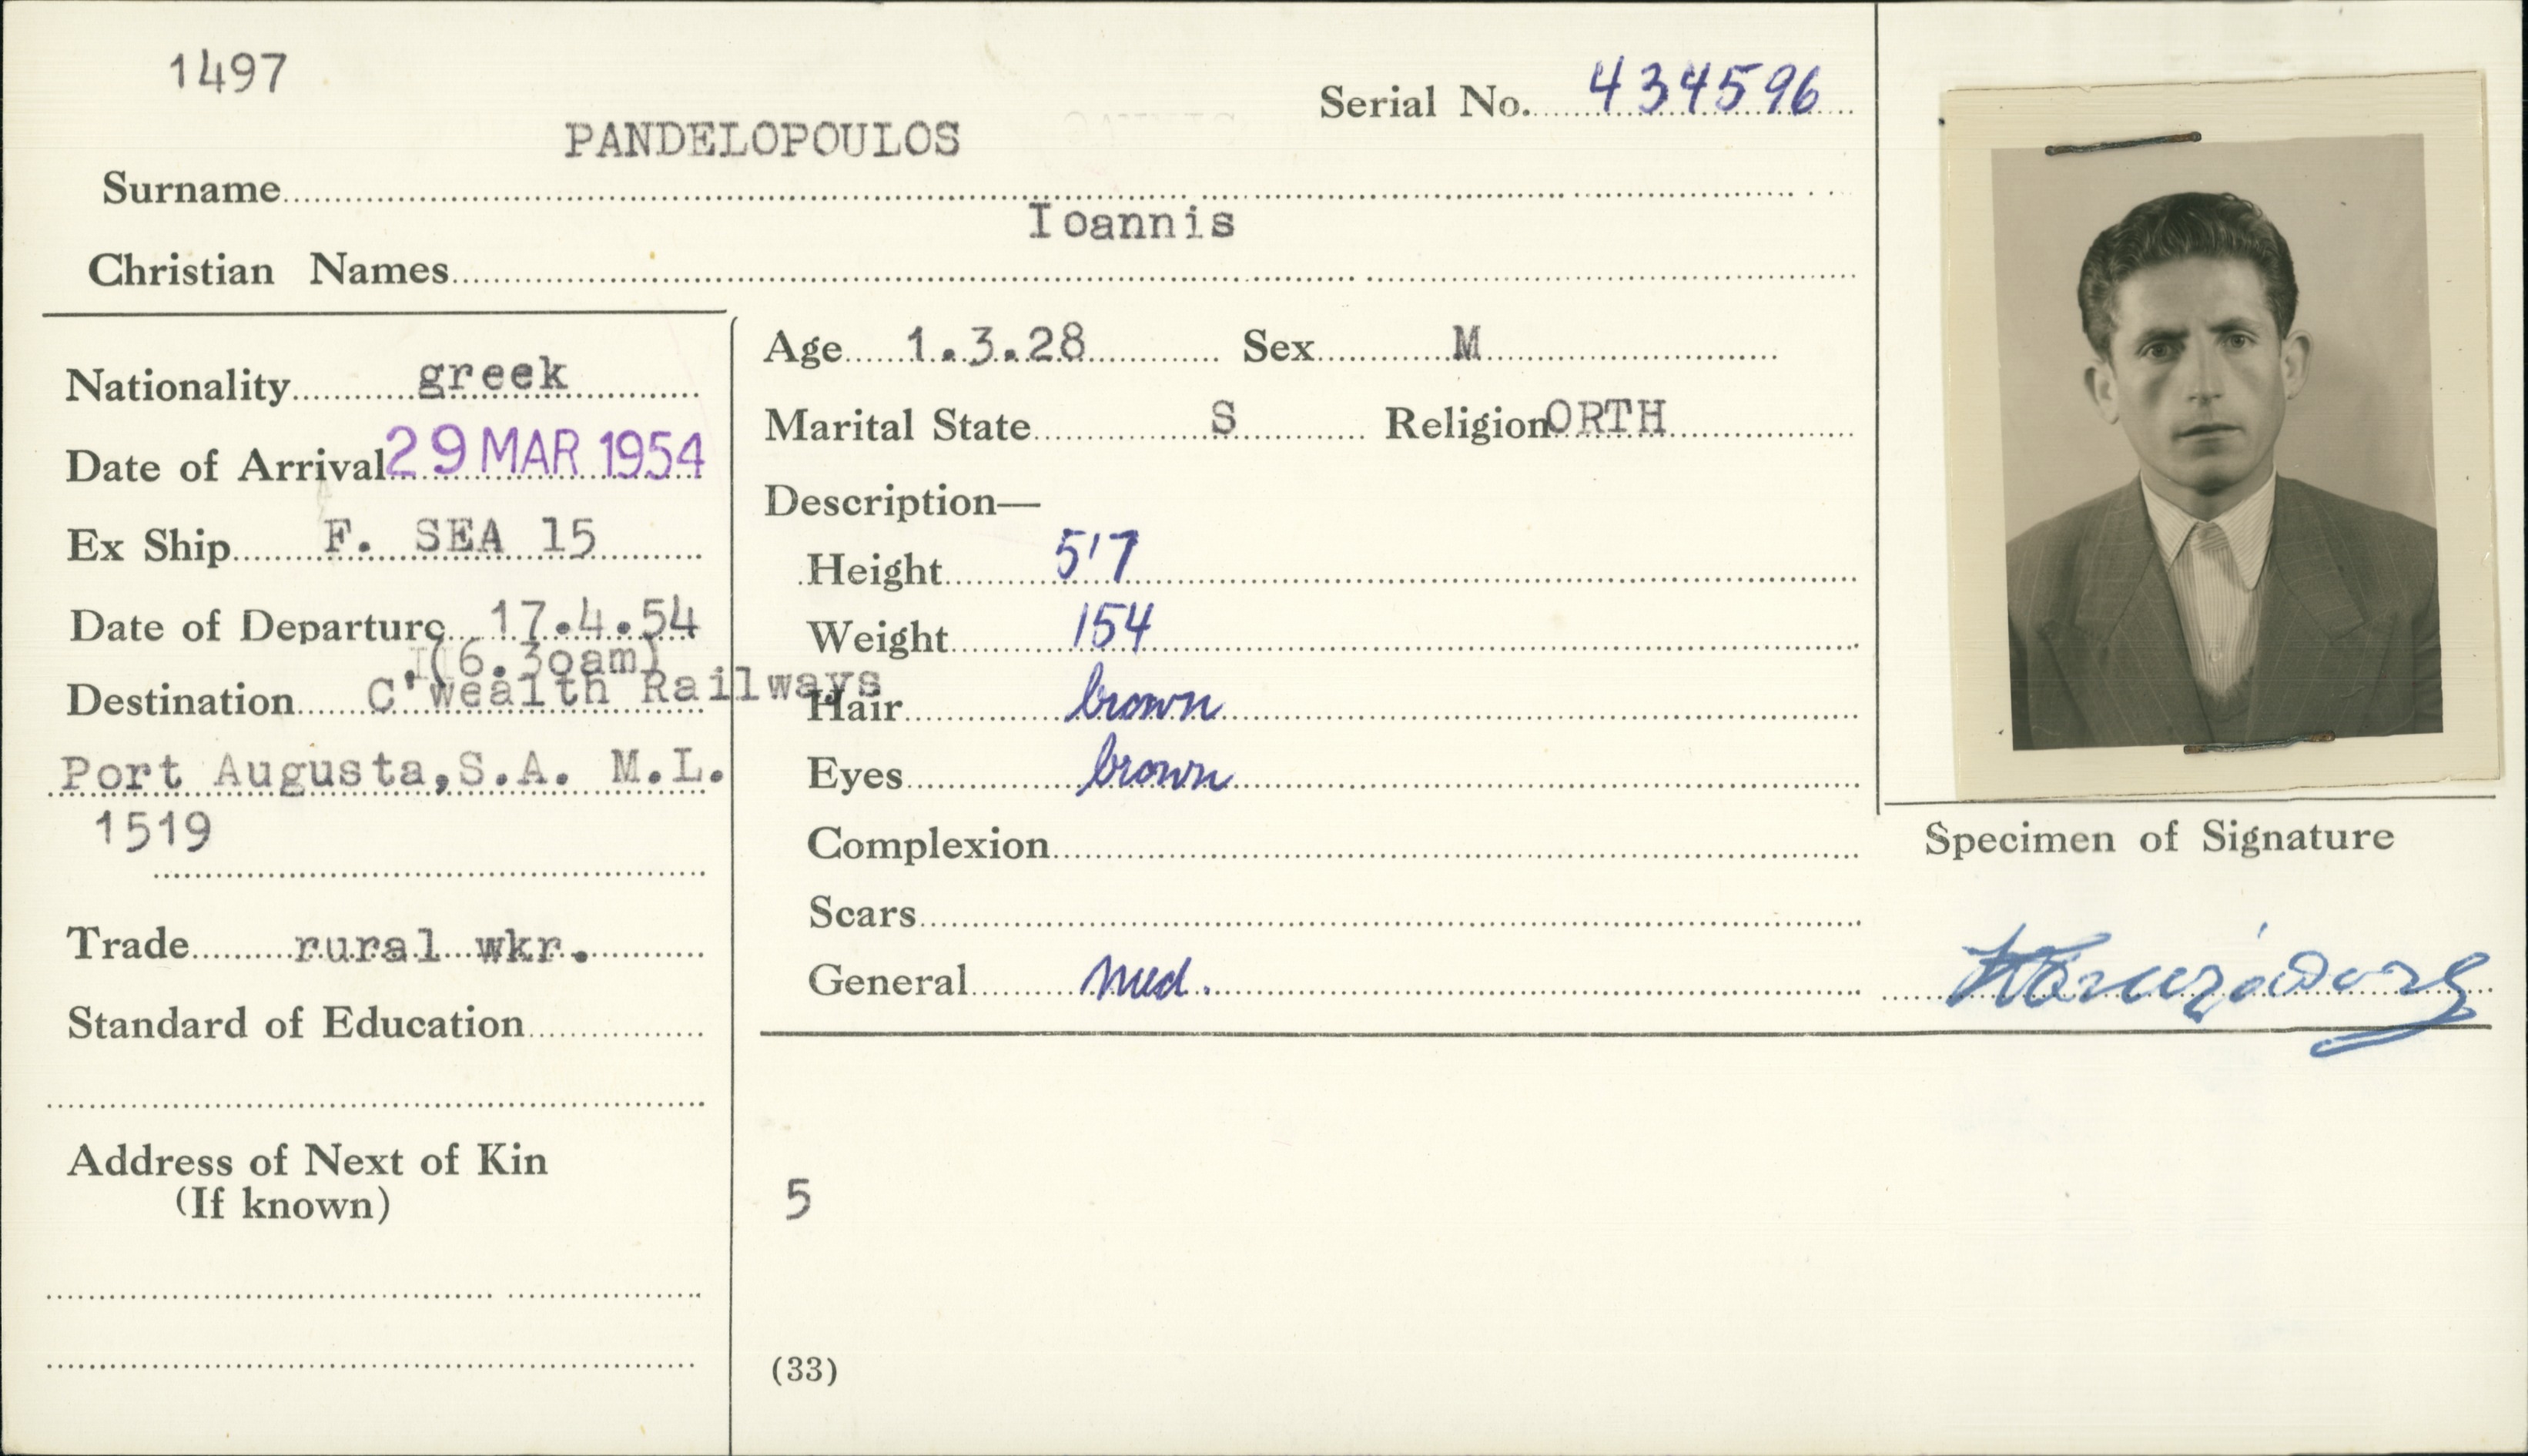 1497
Serial No. 434596
PANDELOPOULOS
Surname
Ioannis
Christian Names
Nationality greek
Date of Arrival 29 MAR 1954
Ex Ship F. SEA 15
Date of Departure 17.4.54
(6.30am)
Destination C'wealth Railways
Port Augusta,S.A. M.L.
1519
Trade rural wkr.
Standard of Education
Address of Next of Kin
(If known)
Age 1.3.28 Sex M
Marital State S Religion ORTH
Description—
Height 5'7
Weight 154
Hair brown
Eyes brown
Complexion
Scars
General med.
5
(33)
Specimen of Signature